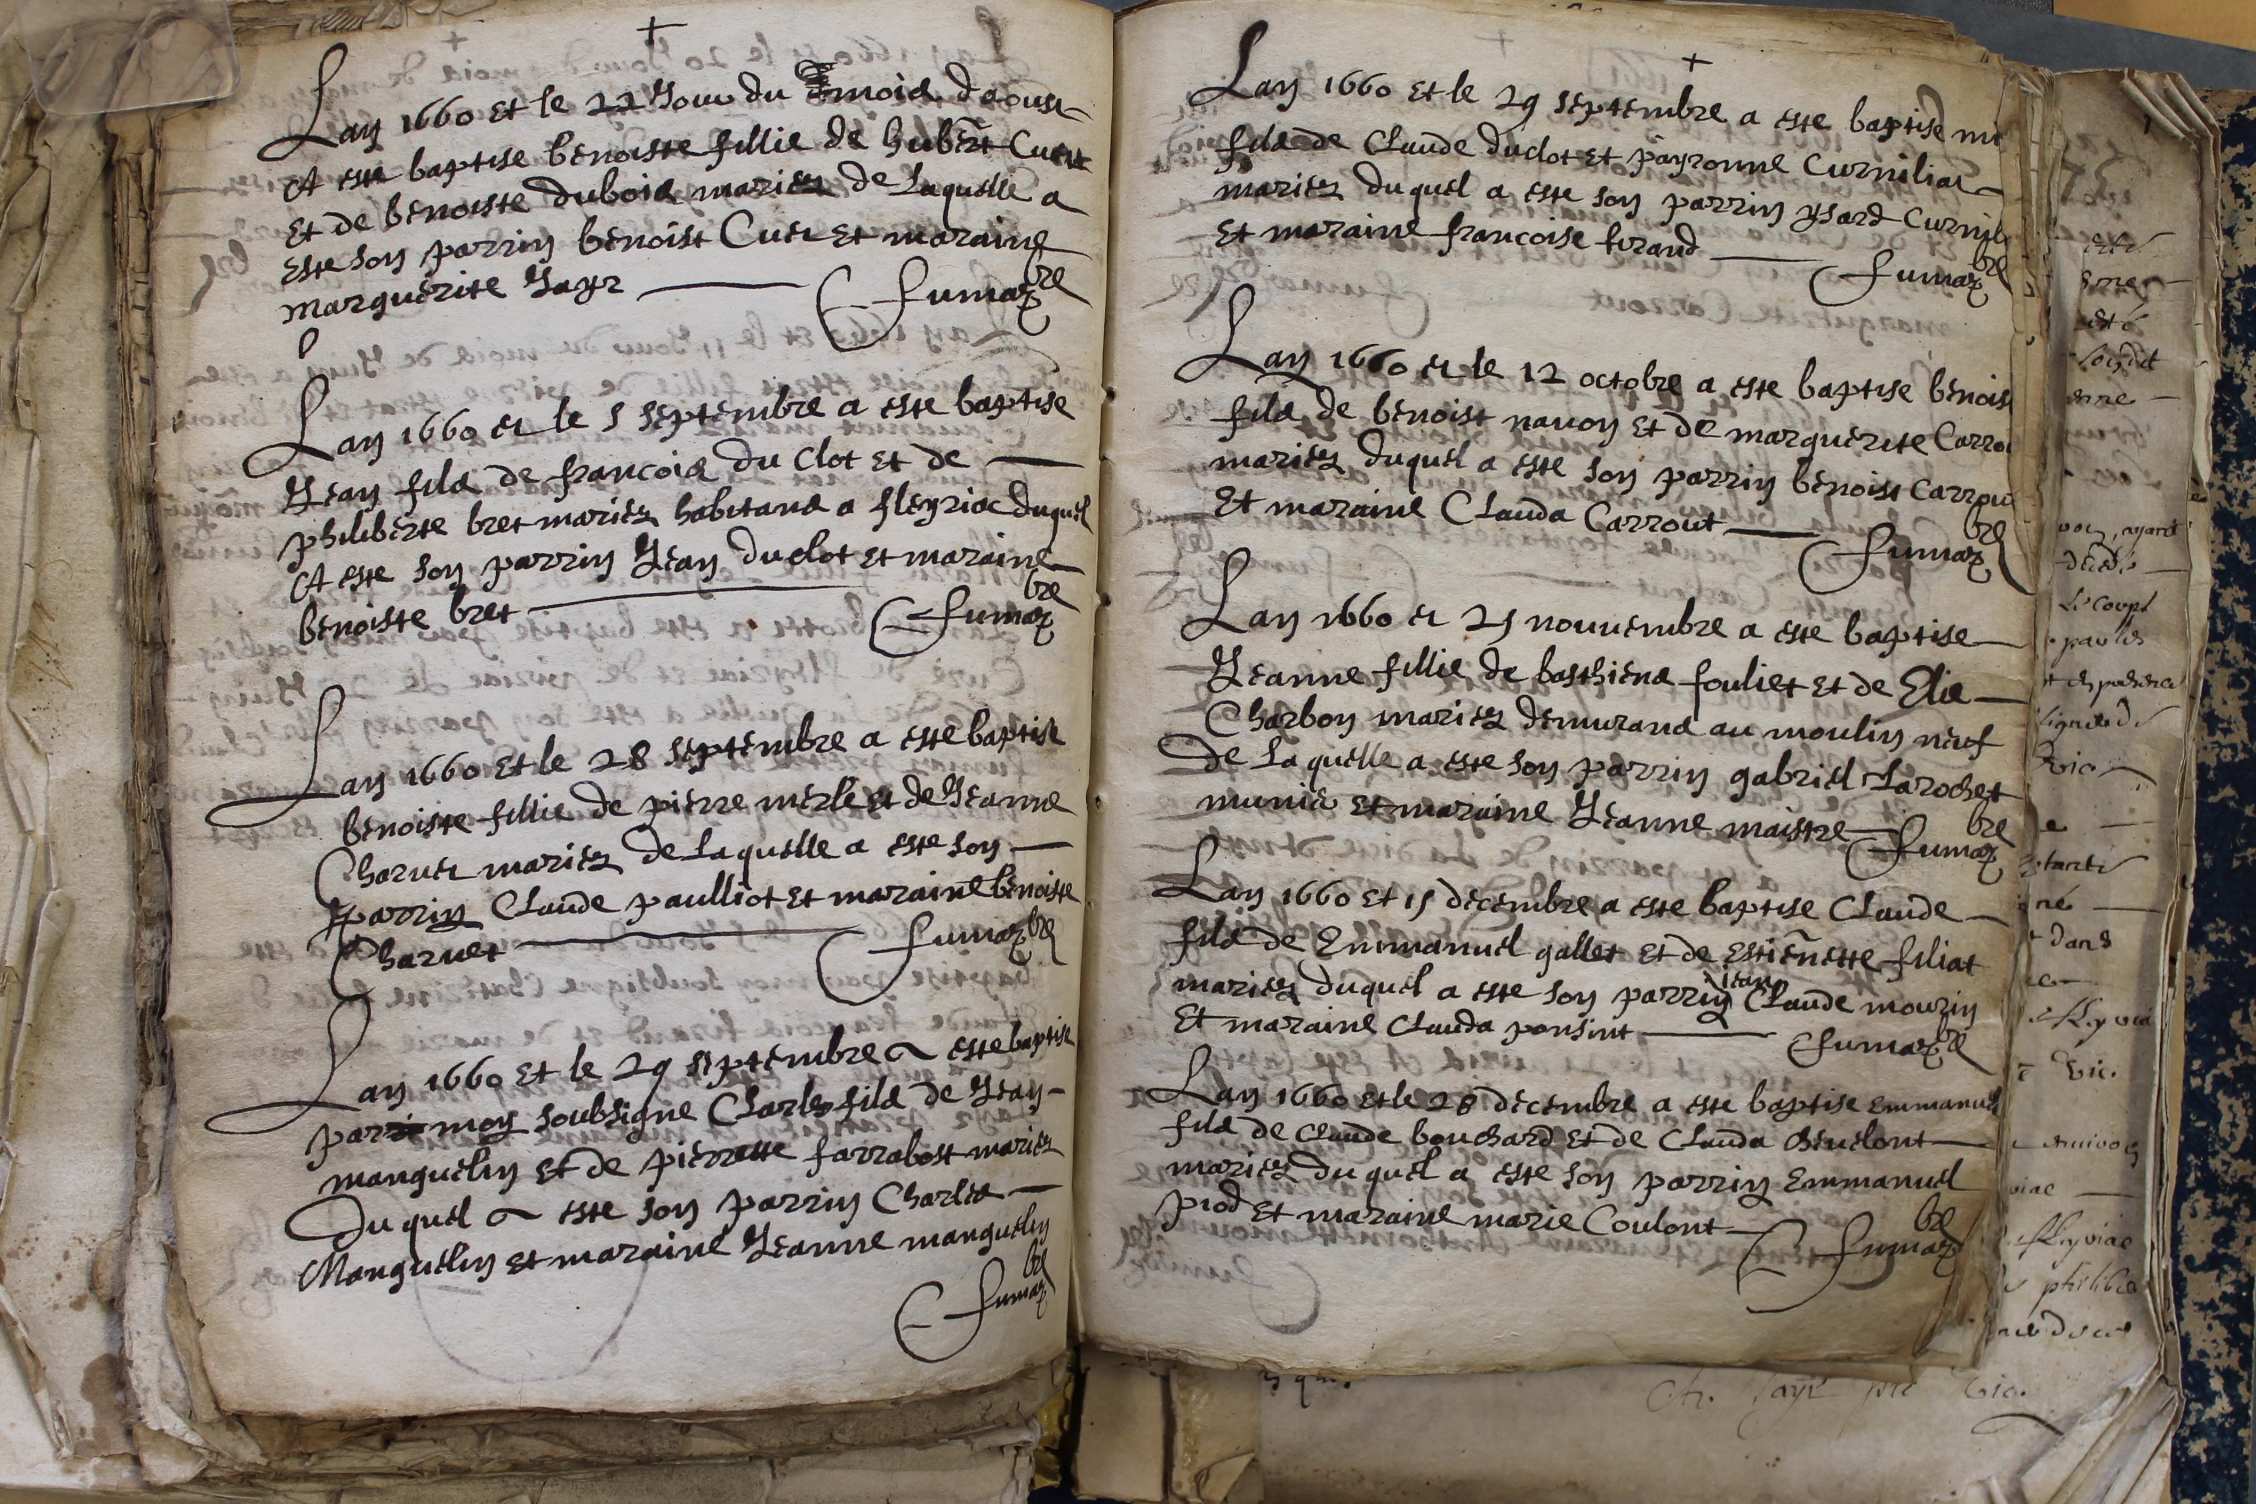 Lan 1660 et le 22 Jour du mois daoust
A este baptise benoiste fillie de hubert Cuer
Et de benoiste dubois mariez de Laquelle a
este son parrin benoist Cuer et maraine
marguerite Jayr
fumaz bre
Lan 1660 et le 5 septembre a este baptise
Jean fils de francois du Clot et de
philiberte bret mariez habitans a fleyriac duquel
A este son parrin Jean duclot et maraine
benoiste bret
fumaz bre
Lan 1660 et le 28 septembre a este baptise
benoiste fillie de pierre merle et de Jeanne
Charuet mariez de Laquelle a este son
parrin Claude paulliot et maraine benoiste
Charuet
fumaz bre
Lan 1660 et le 29 septembre a este baptise
par moy soubsigne Charles fils de Jean
manguelin et de pierrette farrabost mariez
Duquel a este son parrin Charles
Manguelin et maraine Jeanne manguelin
fumaz bre
Lan 1660 et le 29 septembre a este baptise
fils de Claude duclot et payronne Curniliat
mariez duquel a este son parrin ysard
Et maraine francoise firand
fumaz bre
Lan 1660 et le 12 octobre a este baptise benoist
fils de benoist nauon et de marguerite
mariez duquel a este son parrin benoist
Et maraine Clauda Carrout
fumaz bre
Lan 1660 et 25 nouuembre a este baptise
Jeanne fillie de basthiens fouliet et de Elie
Charbon mariez demurans au moulin neuf
de Laquelle a este son parrin gabriel Larochet
munie et maraine Jeanne maistre
fumaz bre
Lan 1660 et 15 decembre a este baptise Claude
fils de Emmanuel gallet et de Estienette filiat
mariez duquel a este son parrin Claude mourin
Et maraine Clauda ponsint
fumaz bre
Lan 1660 et le 28 decembre a este baptise Emmanuel
fils de Claude bouchard et de Clauda cheuelont
mariez duquel a este son parrin Emmanuel
piod et maraine marie Coulont
fumaz bre